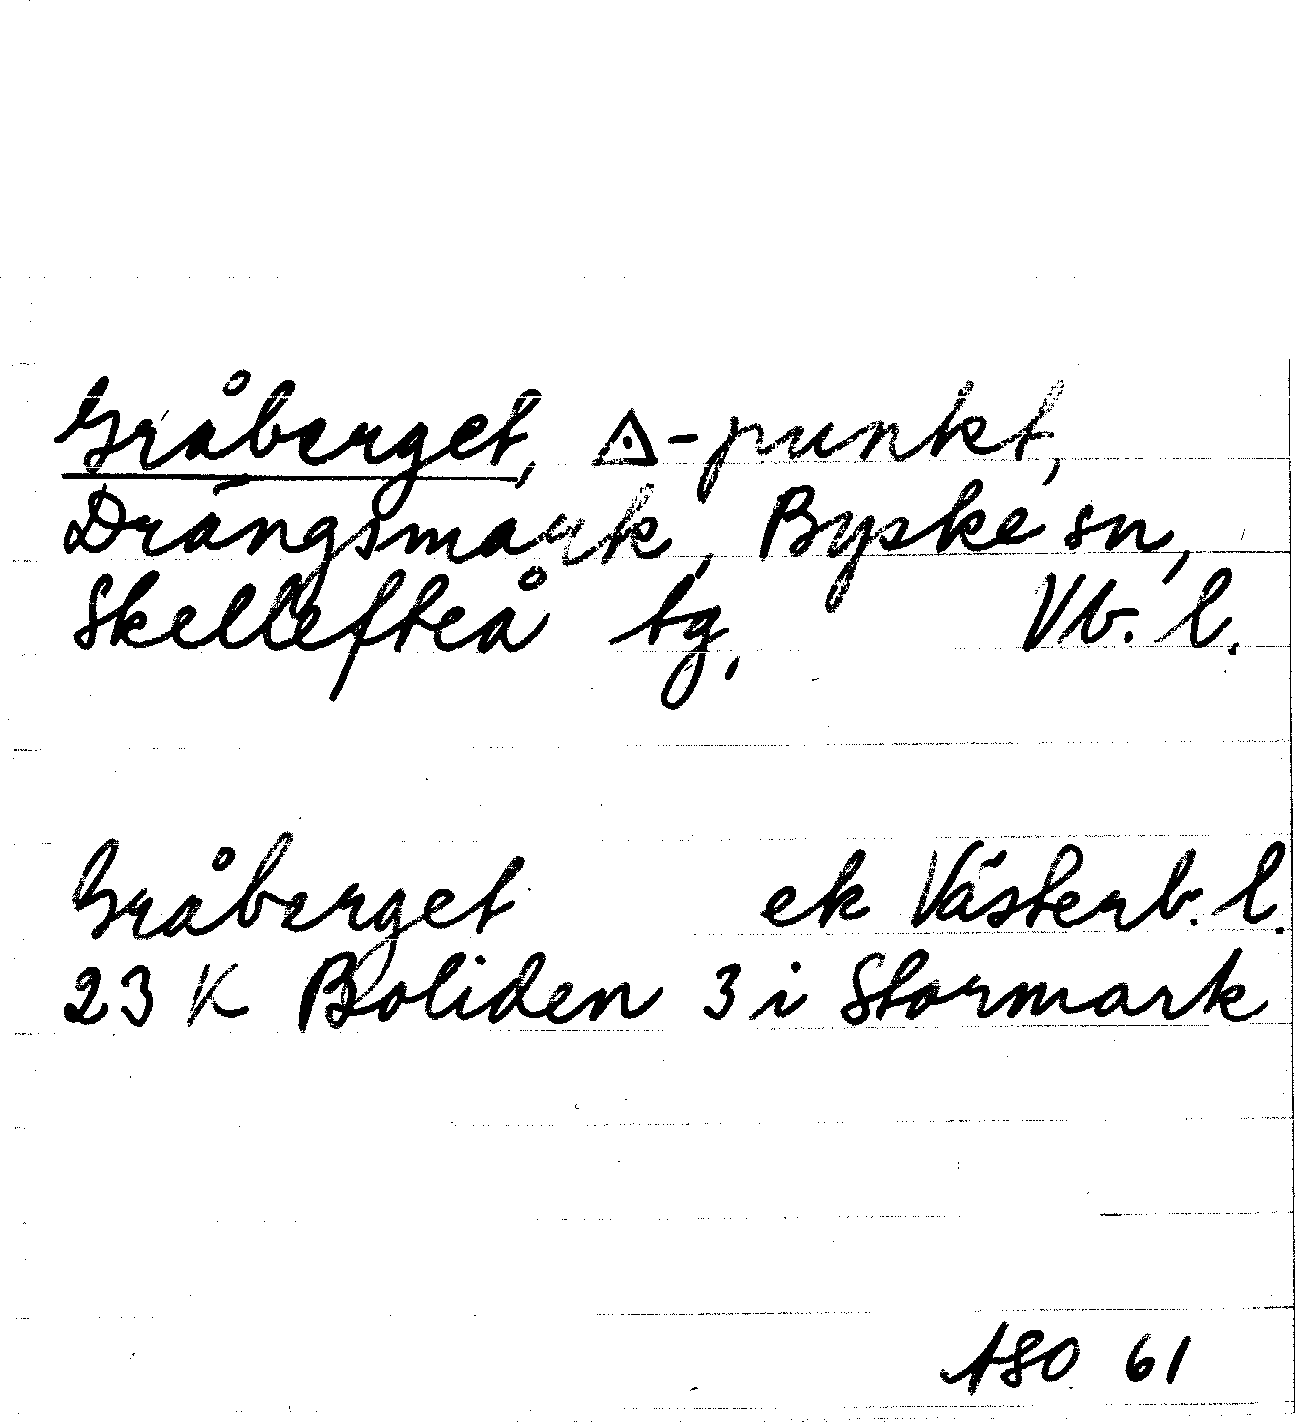 Gråberget, ◬-punkt,
Drängsmark, Byske sn,
Skellefteå tg, Vb. l.
Gråberget ek Västerb. l.
23 K Boliden 3 i Stormark
ASO 61